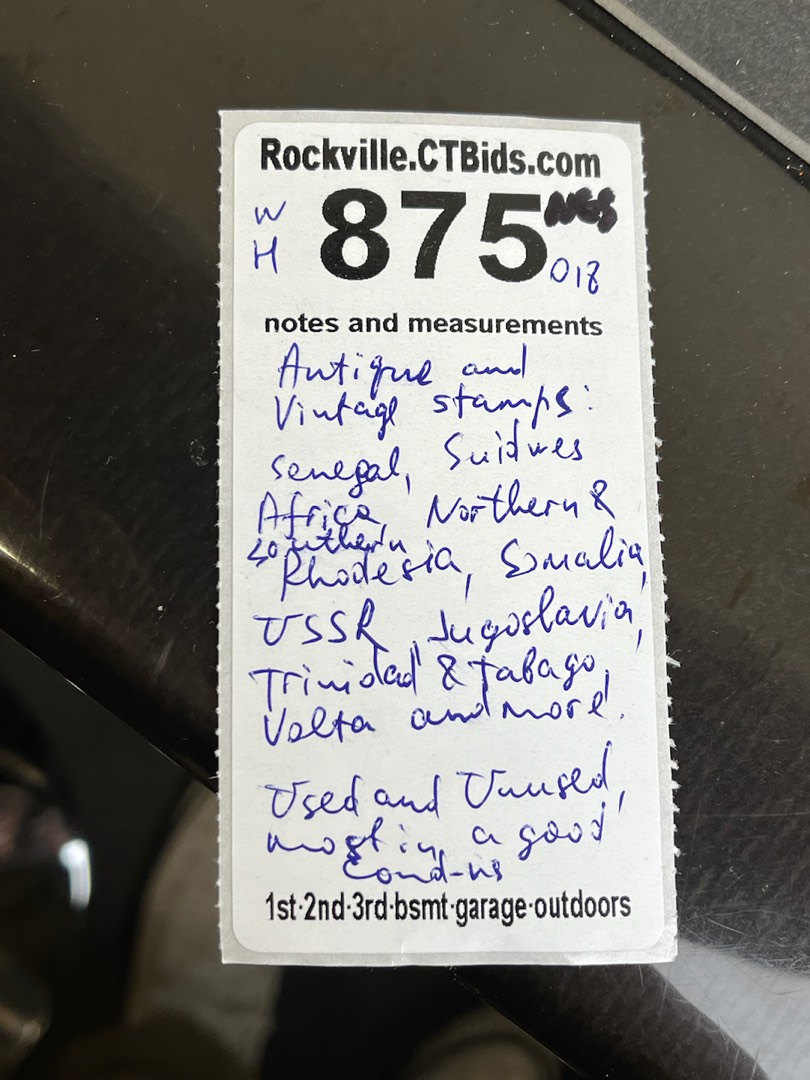 Rockville.CTBids.com
W
H
875
018
notes and measurements
Antique and
Vintage stamps:
senegal, Suidwes
Africa, Northern &
southern
Rhodesia, Somalia,
USSR, Jugoslavia,
Trinidad & Tabago,
Volta and more.
Used and Unused,
most in a good
Cond-ns
1st·2nd·3rd·bsmt·garage·outdoors